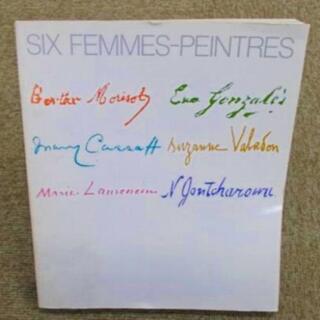 SIX FEMMES-PEINTRES
Berthe Morisot Eva Gonzalès
Mary Cassatt Suzanne Valadon
Marie Laurencin N. Gontcharova